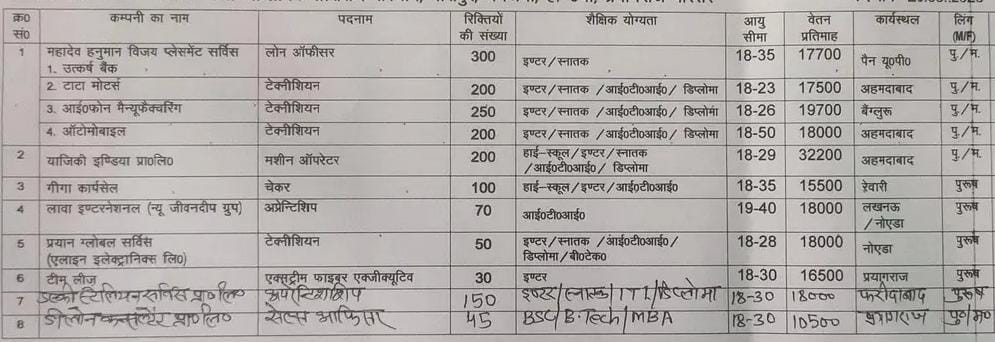 क्र0 सं0 | कम्पनी का नाम | पदनाम | रिक्तियों की संख्या | शैक्षिक योग्यता | आयु सीमा | वेतन प्रतिमाह | कार्यस्थल | लिंग (M/F)
1 | महादेव हनुमान विजय प्लेसमेंट सर्विस 1. उत्कर्ष बैंक | लोन ऑफीसर | 300 | इण्टर/स्नातक | 18-35 | 17700 | पैन यू0पी0 | पु./म.
2. टाटा मोटर्स | टेक्नीशियन | 200 | इण्टर/स्नातक /आई0टी0आई0 / डिप्लोमा | 18-23 | 17500 | अहमदाबाद | पु./म.
3. आई0फोन मैन्यूफैक्चरिंग | टेक्नीशियन | 250 | इण्टर/स्नातक /आई0टी0आई0/ डिप्लोमा | 18-26 | 19700 | बैंग्लुरू | पु./म.
4. ऑटोमोबाइल | टेक्नीशियन | 200 | इण्टर/स्नातक /आई0टी0आई0/ डिप्लोमा | 18-50 | 18000 | अहमदाबाद | पु./म.
2 | याजिकी इण्डिया प्रा0लि0 | मशीन ऑपरेटर | 200 | हाई-स्कूल/इण्टर/स्नातक /आई0टी0आई0/ डिप्लोमा | 18-29 | 32200 | अहमदाबाद | पु./म.
3 | गीगा कार्पसेल | चेकर | 100 | हाई-स्कूल/इण्टर/आई0टी0आई0 | 18-35 | 15500 | रेवारी | पुरूष
4 | लावा इण्टरनेशनल (न्यू जीवनदीप ग्रुप) | अप्रेन्टिशिप | 70 | आई0टी0आई0 | 19-40 | 18000 | लखनऊ /नोएडा | पुरूष
5 | प्रयान ग्लोबल सर्विस (एलाइन इलेक्ट्रानिक्स लि0) | टेक्नीशियन | 50 | इण्टर/स्नातक /आई0टी0आई0/ डिप्लोमा/बी0टेक0 | 18-28 | 18000 | नोएडा | पुरूष
6 | टीम लीज | एक्सट्रीम फाइबर एक्जीक्यूटिव | 30 | इण्टर | 18-30 | 16500 | प्रयागराज | पुरूष
7 | प्रा0लि0 | 150 | इण्टर/स्नातक/ITI/डिप्लोमा | 18-30 | 18000 | फरीदाबाद | पुरूष
8 | प्रा0लि0 | सेल्स आफिसर | 45 | BSC/B.Tech/MBA | 18-30 | 10500 | प्रयागराज | पु0/म0